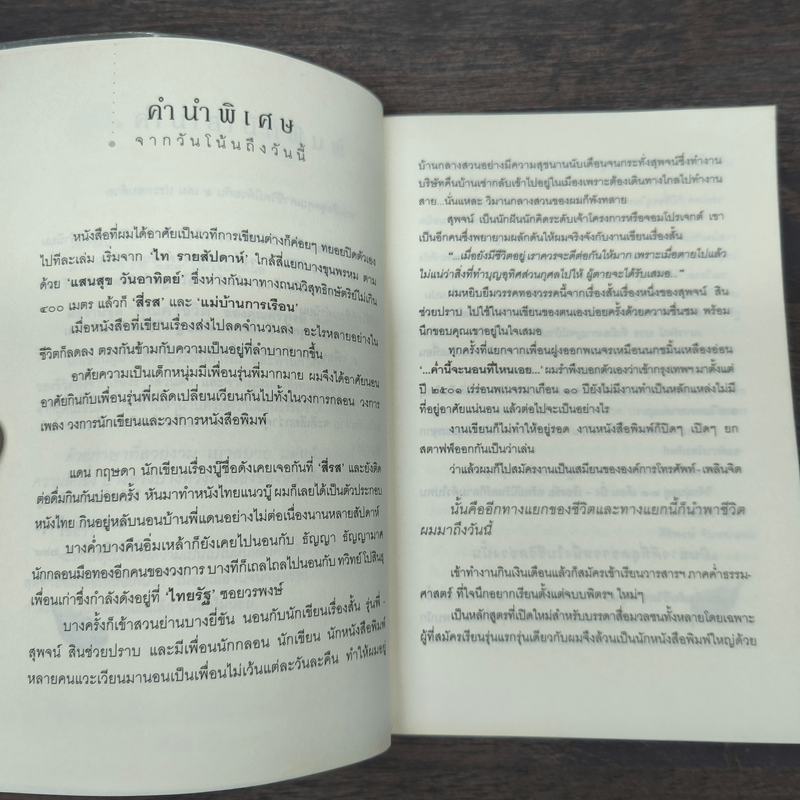 คำนำพิเศษ
จากวันโน้นถึงวันนี้
หนังสือที่ผมได้อาศัยเป็นเวทีการเขียนต่างก็ค่อยๆ ทยอยปิดตัวเอง
ไปทีละเล่ม เริ่มจาก 'ไท รายสัปดาห์' ใกล้สี่แยกบางขุนพรหม ตาม
ด้วย 'แสนสุข วันอาทิตย์' ซึ่งห่างกันมาทางถนนวิสุทธิกษัตริย์ไม่เกิน
๔๐๐ เมตร แล้วก็ 'สี่รส' และ 'แม่บ้านการเรือน'
เมื่อหนังสือที่เขียนเรื่องส่งไปลดจำนวนลง อะไรหลายอย่างใน
ชีวิตก็ลดลง ตรงกันข้ามกับความเป็นอยู่ที่ลำบากยากขึ้น
อาศัยความเป็นเด็กหนุ่มมีเพื่อนรุ่นพี่มากมาย ผมจึงได้อาศัยนอน
อาศัยกินกับเพื่อนรุ่นพี่ผลัดเปลี่ยนเวียนกันไปทั้งในวงการกลอน วงการ
เพลง วงการนักเขียนและวงการหนังสือพิมพ์
แดน กฤษดา นักเขียนเรื่องบู๊ชื่อดังเคยเจอกันที่ 'สี่รส' และยังติด
ต่อดื่มกินกันบ่อยครั้ง หันมาทำหนังไทยแนวบู๊ ผมก็เลยได้เป็นตัวประกอบ
หนังไทย กินอยู่หลับนอนบ้านพี่แดนอย่างไม่ต่อเนื่องนานหลายสัปดาห์
บางค่ำบางคืนอิ่มเหล้าก็ยังเคยไปนอนกับ ธัญญา ธัญญามาศ
นักกลอนมือทองอีกคนของวงการ บางทีก็เถลไถลไปนอนกับ ทวิทย์ ไปสินธุ
เพื่อนเก่าซึ่งกำลังดังอยู่ที่ 'ไทยรัฐ' ซอยวรพงษ์
บางครั้งก็เข้าสวนย่านบางยี่ขัน นอนกับนักเขียนเรื่องสั้น รุ่นพี่ -
สุพจน์ สินช่วยปราบ และมีเพื่อนนักกลอน นักเขียน นักหนังสือพิมพ์
หลายคนแวะเวียนมานอนเป็นเพื่อนไม่เว้นแต่ละวันละคืน ทำให้ผมอยู่
บ้านกลางสวนอย่างมีความสุขนานนับเดือนจนกระทั่งสุพจน์ซึ่งทำงาน
บริษัทคืนบ้านเช่ากลับเข้าไปอยู่ในเมืองเพราะต้องเดินทางไกลไปทำงาน
สาย...นั่นแหละ วิมานกลางสวนของผมก็พังทลาย
สุพจน์ เป็นนักฝันนักคิดระดับเจ้าโครงการหรือจอมโปรเจกต์ เขา
เป็นอีกคนซึ่งพยายามผลักดันให้ผมจริงจังกับงานเขียนเรื่องสั้น
"...เมื่อยังมีชีวิตอยู่ เราควรจะดีต่อกันให้มาก เพราะเมื่อตายไปแล้ว
ไม่แน่ว่าสิ่งที่ทำบุญอุทิศส่วนกุศลไปให้ ผู้ตายจะได้รับเสมอ..."
ผมหยิบยืมวรรคทองวรรคนี้จากเรื่องสั้นเรื่องหนึ่งของสุพจน์ สิน
ช่วยปราบ ไปใช้ในงานเขียนของตนเองบ่อยครั้งด้วยความชื่นชม พร้อม
นึกขอบคุณเขาอยู่ในใจเสมอ
ทุกครั้งที่แยกจากเพื่อนฝูงออกพเนจรเหมือนนกขมิ้นเหลืองอ่อน
'...ค่ำนี้จะนอนที่ไหนเอย...' ผมรำพึงบอกตัวเองว่าเข้ากรุงเทพฯ มาตั้งแต่
ปี ๒๕๐๑ เร่ร่อนพเนจรมาเกือน ๑๐ ปียังไม่มีงานทำเป็นหลักแหล่งไม่มี
ที่อยู่อาศัยแน่นอน แล้วต่อไปจะเป็นอย่างไร
งานเขียนก็ไม่ทำให้อยู่รอด งานหนังสือพิมพ์ก็ปิดๆ เปิดๆ ยก
สตาฟฟ์ออกกันเป็นว่าเล่น
ว่าแล้วผมก็ไปสมัครงานเป็นเสมียนขององค์การโทรศัพท์ - เพลินจิต
นั้นคืออีกทางแยกของชีวิตและทางแยกนี้ก็นำพาชีวิต
ผมมาถึงวันนี้
เข้าทำงานกินเงินเดือนแล้วก็สมัครเข้าเรียนวารสารฯ ภาคค่ำธรรม-
ศาสตร์ ที่ใจนึกอยากเรียนตั้งแต่จบบพิตรฯ ใหม่ๆ
เป็นหลักสูตรที่เปิดใหม่สำหรับบรรดาสื่อมวลชนทั้งหลายโดยเฉพาะ
ผู้ที่สมัครเรียนรุ่นแรกรุ่นเดียวกับผมจึงล้วนเป็นนักหนังสือพิมพ์ใหญ่ด้วย